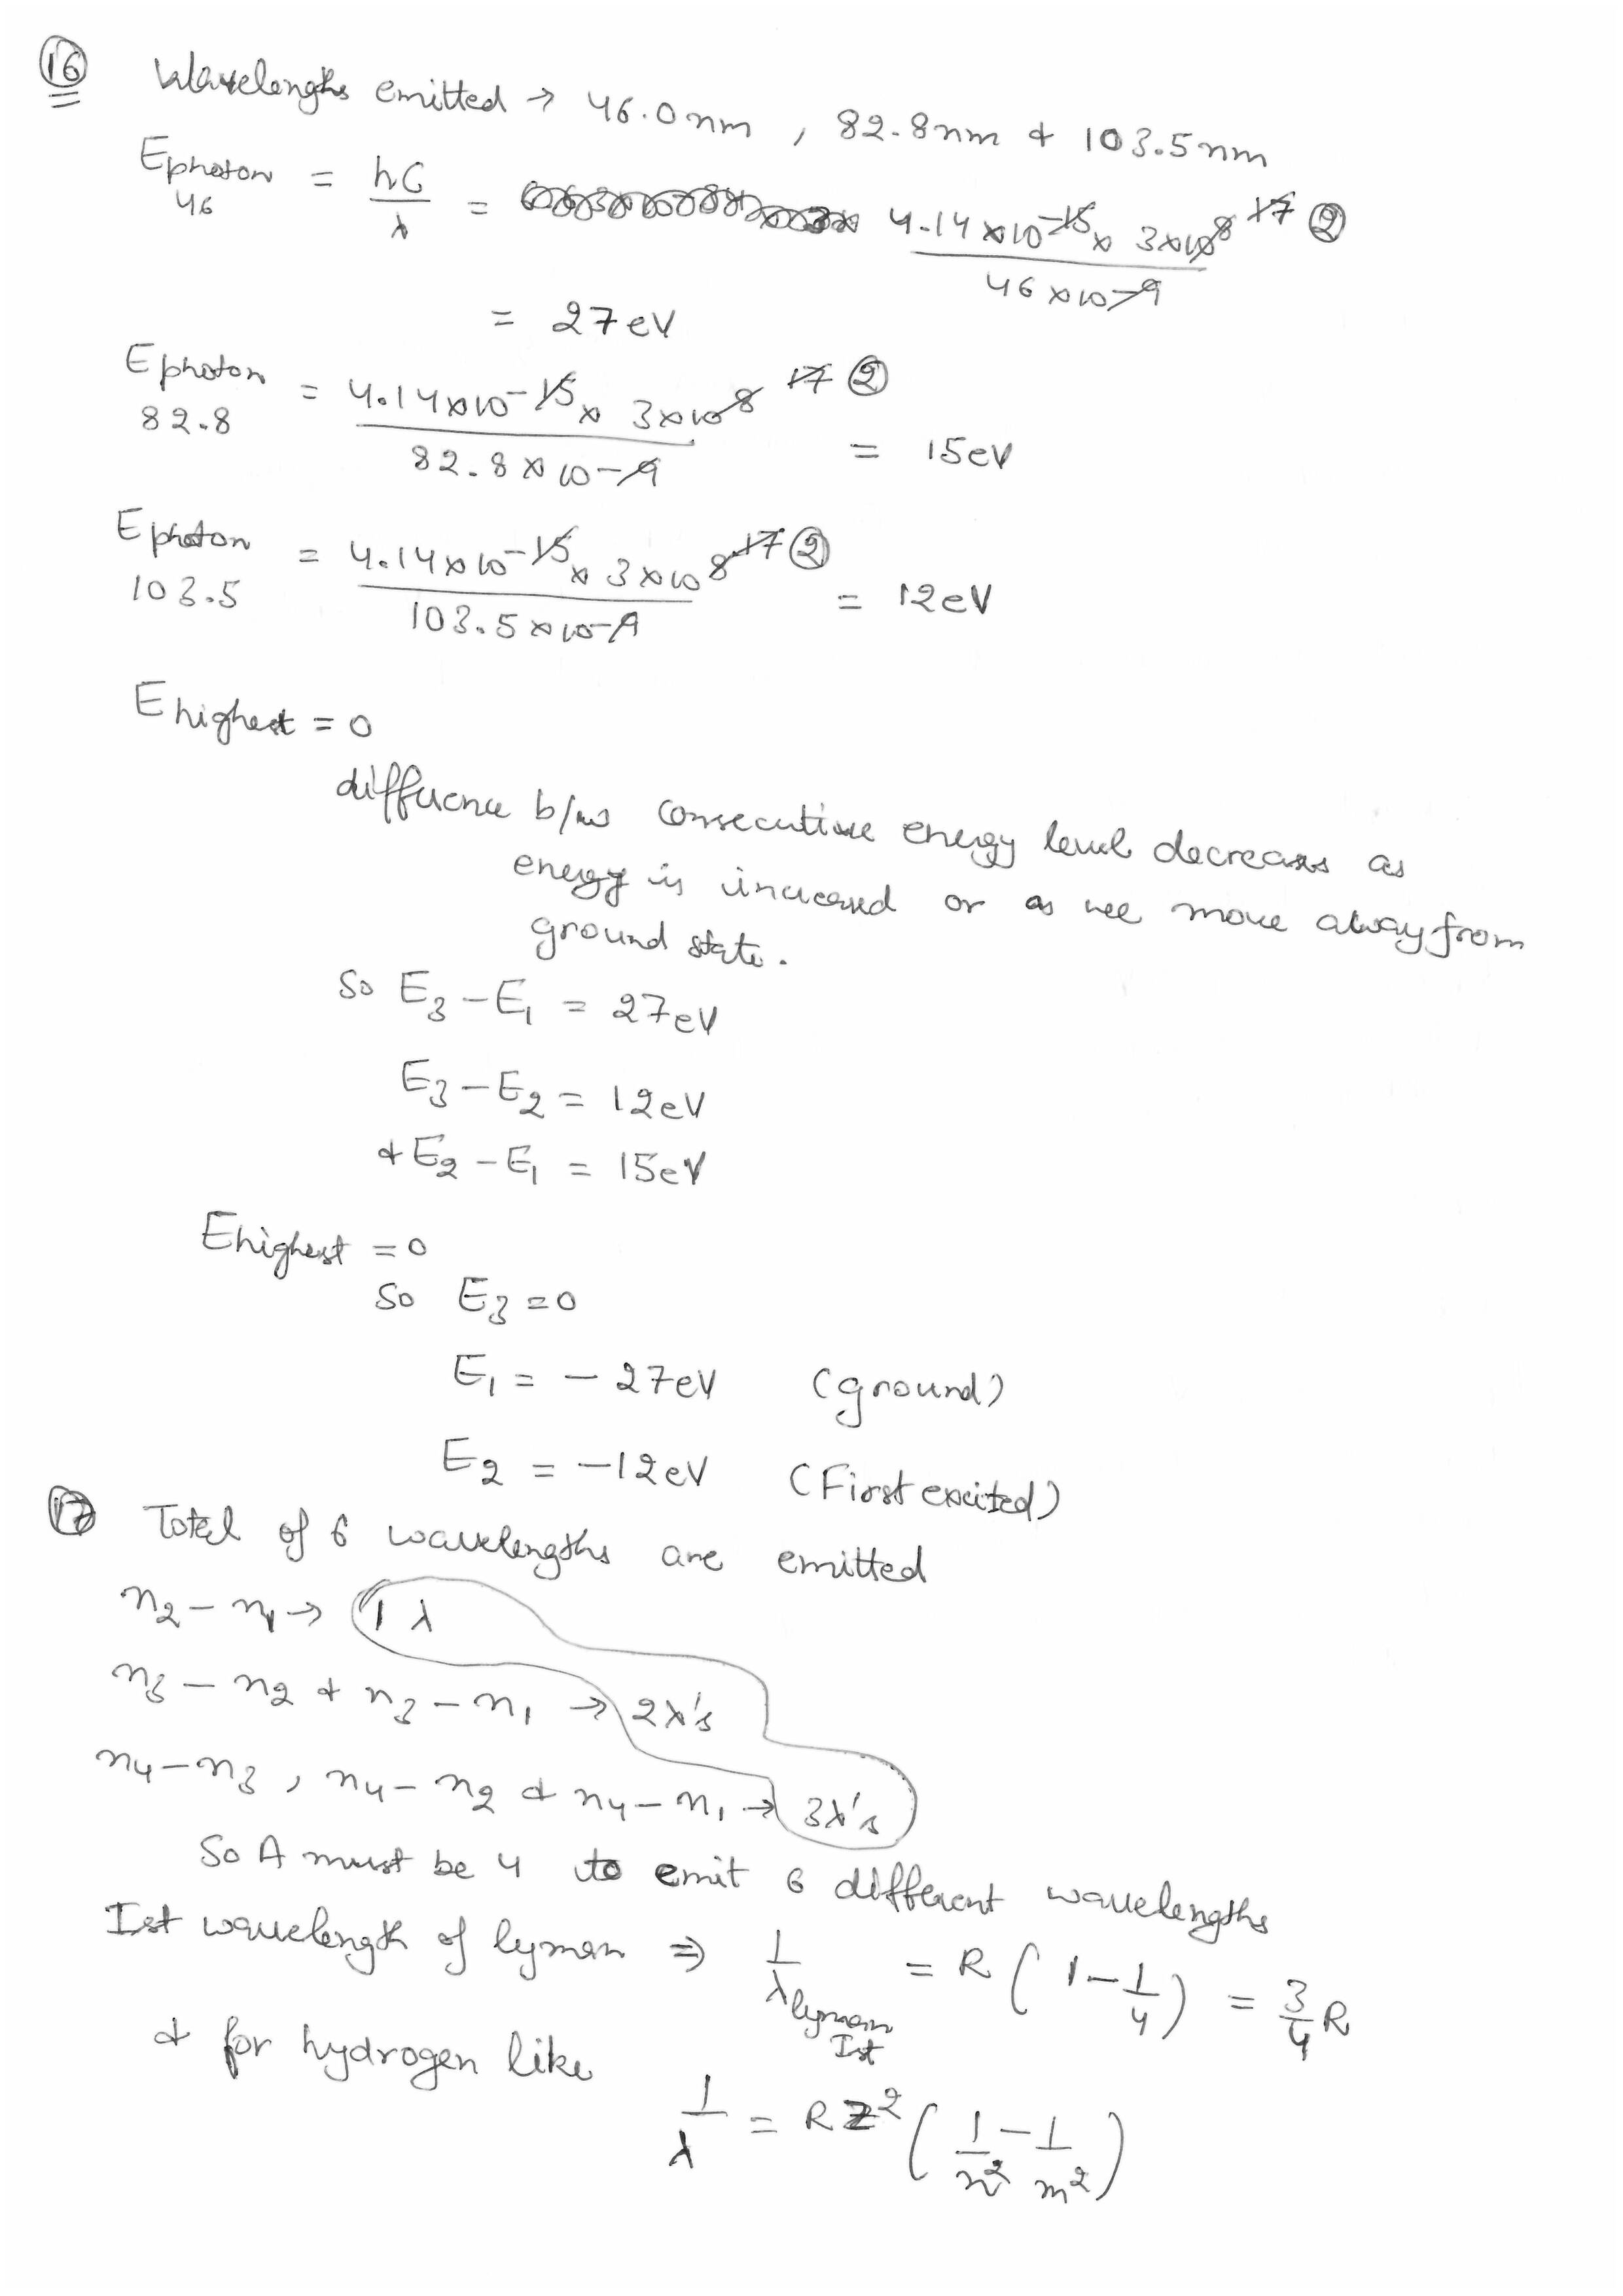 16 Wavelengths emitted → 46.0nm, 82.8nm & 103.5nm
Ephoton 46 = hC/λ = 4.14×10-15 × 3×108 17 2 / 46×10-9
= 27eV
Ephoton 82.8 = 4.14×10-15 × 3×108 17 2 / 82.8×10-9 = 15eV
Ephoton 103.5 = 4.14×10-15 × 3×108 17 2 / 103.5×10-9 = 12eV
Ehighest = 0
difference b/w consecutive energy level decreases as
energy is increased or as we move away from
ground state.
So E3 - E1 = 27eV
E3 - E2 = 12eV
& E2 - E1 = 15eV
Ehighest = 0
So E3 = 0
E1 = - 27eV (ground)
E2 = -12eV (First excited)
17 Total of 6 wavelengths are emitted
n2 - n1 → 1 λ
n3 - n2 & n3 - n1 → 2λ's
n4 - n3, n4 - n2 & n4 - n1 → 3λ's
So A must be 4 to emit 6 different wavelengths
Ist wavelength of lyman ⇒ 1/λlyman Ist = R (1 - 1/4) = 3/4 R
& for hydrogen like
1/λ = RZ² (1/n² - 1/m²)